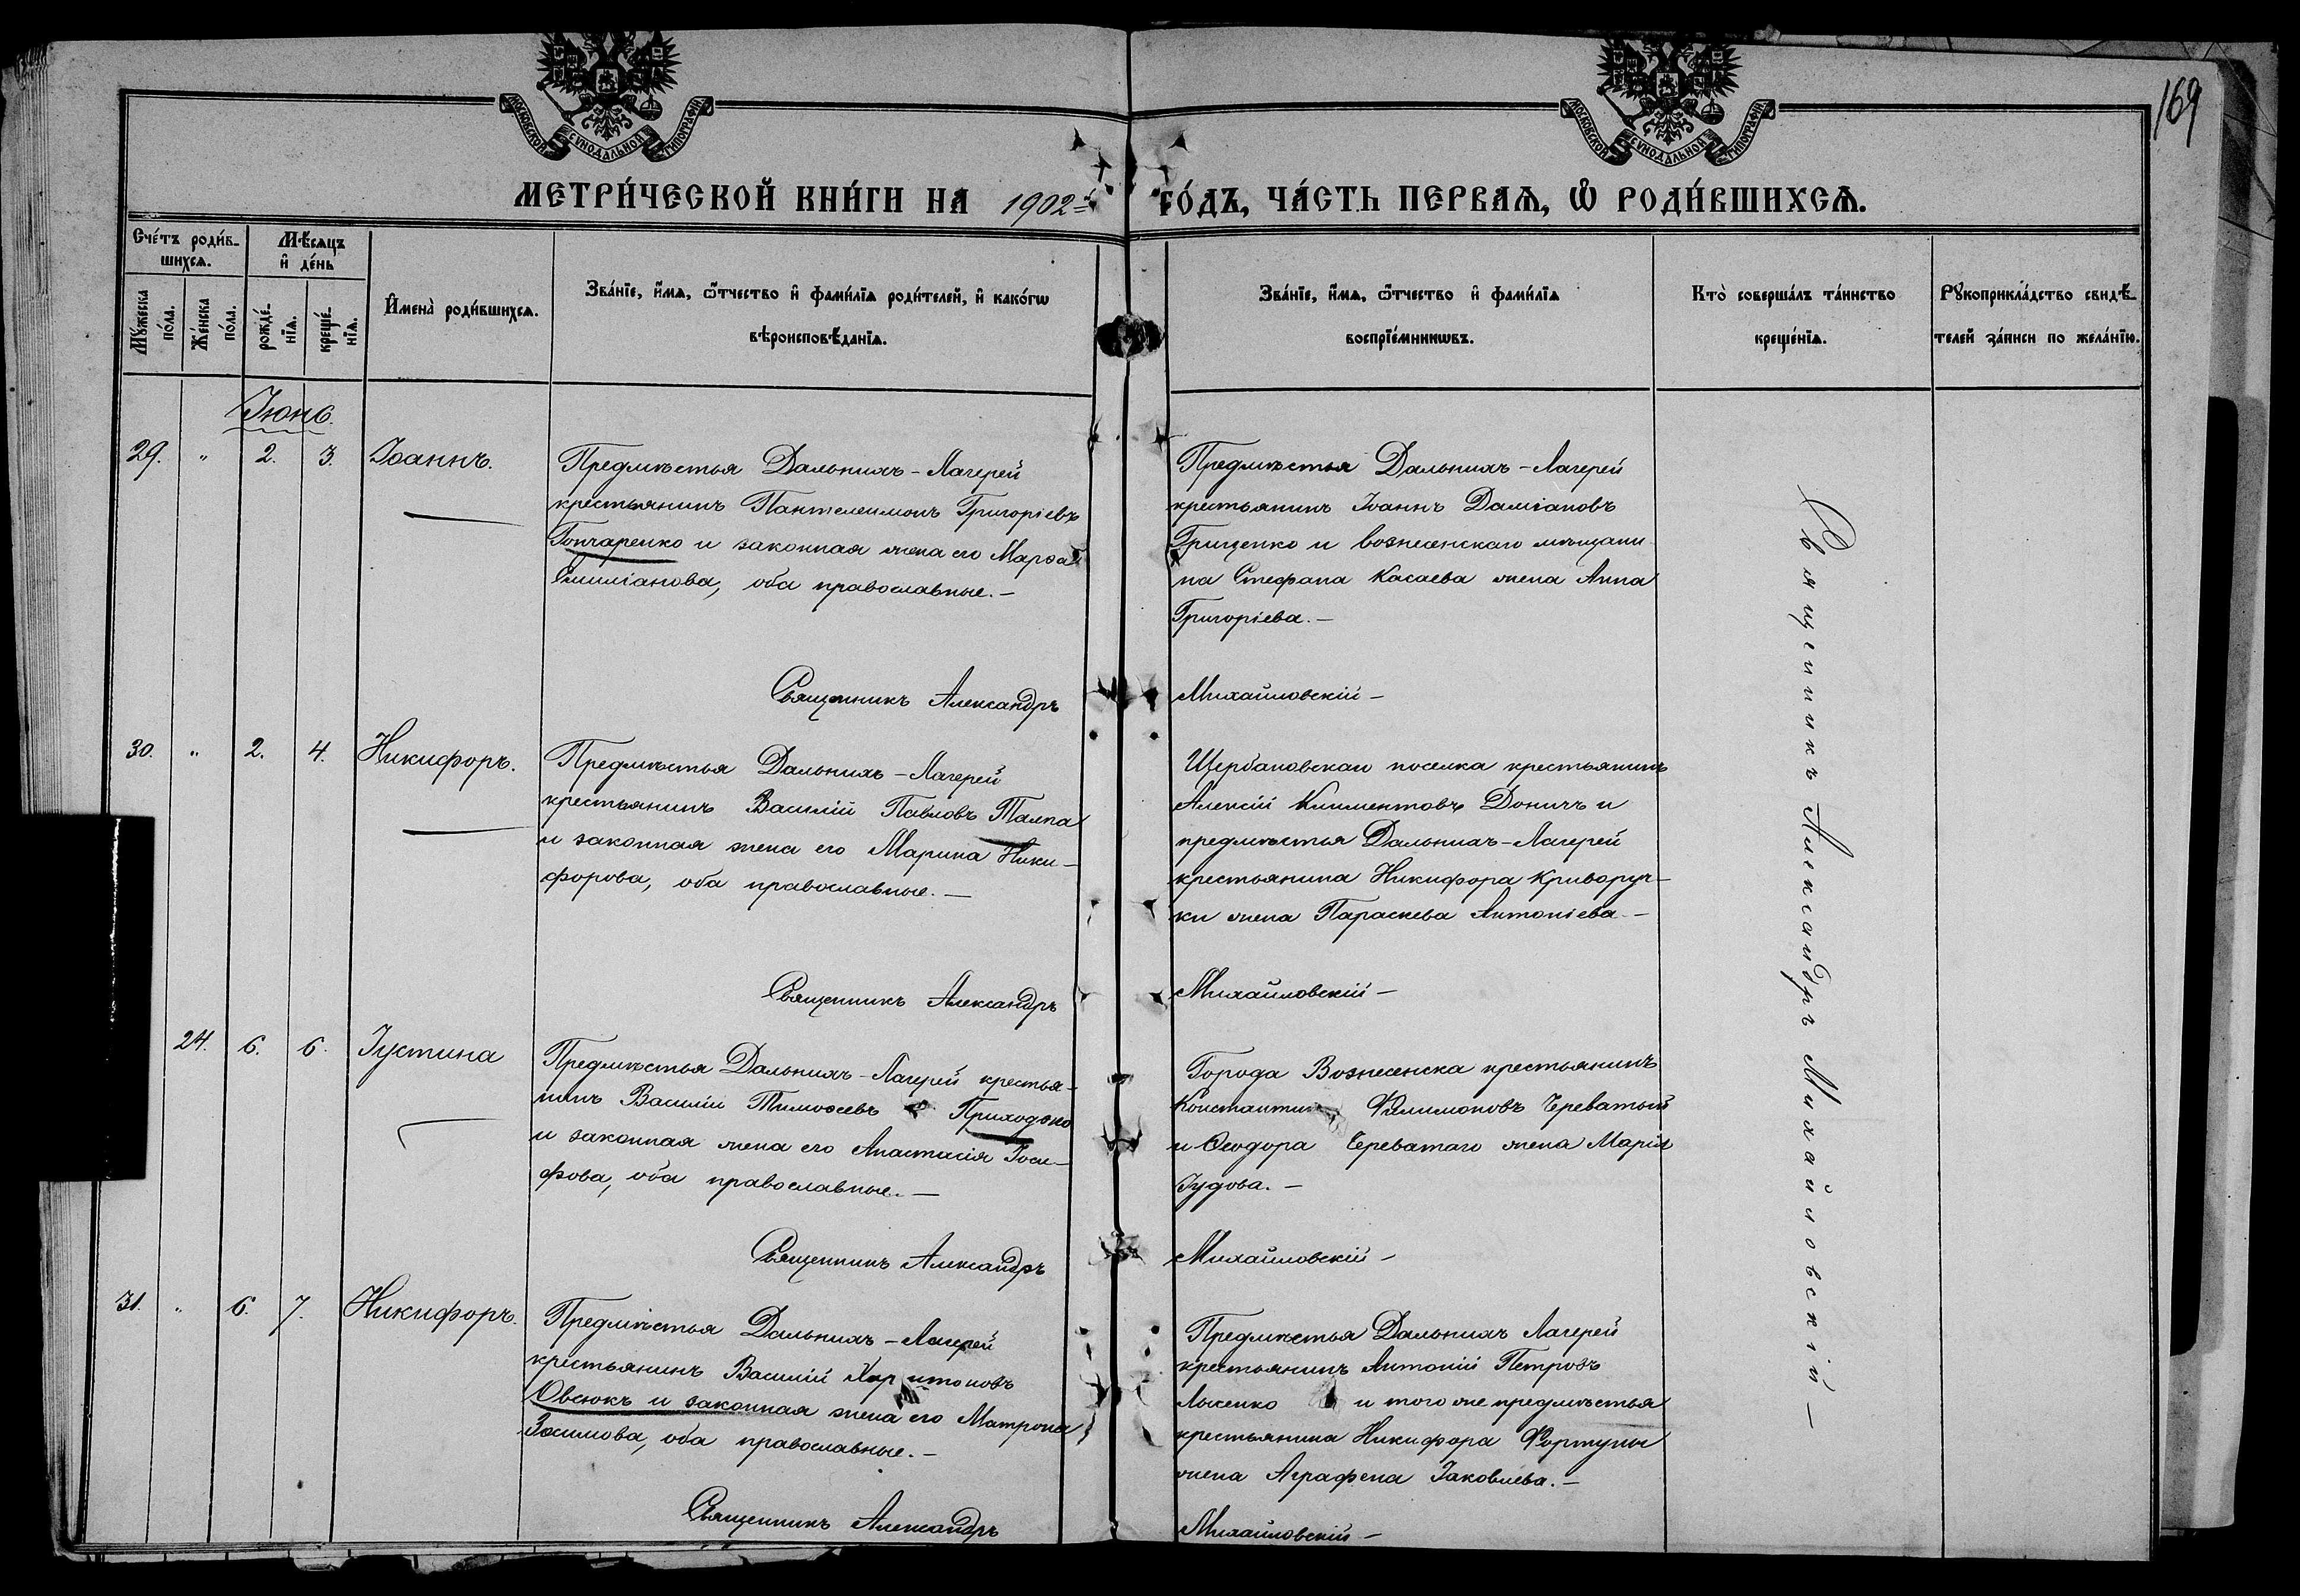 169
МОСКОВСКОЙ СѴНОДАЛЬНОЙ ТИПОГРАФІИ
МОСКОВСКОЙ СѴНОДАЛЬНОЙ ТИПОГРАФІИ
МЕТРИ́ЧЕСКОЙ КНИ́ГИ НА 1902 й ГО́ДЪ, ЧА́СТЬ ПЕРВАѦ, Ѽ РОДИ́ВШИХСѦ.
Сче́тъ роди́в-
шихсѧ.
Мѣ́сѧцъ
и҆ де́нь
Мꙋ́жеска
по́ла.
Же́нска
по́ла.
рожде́-
нїѧ.
креще́-
нїѧ.
И҆мена̀ роди́вшихсѧ.
Зва́нїе, и҆́мѧ, ѻ҆́тчество и҆ фами́лїѧ роди́телей, и҆ како́гѡ
вѣроисповѣ́данїѧ.
Зва́нїе, и҆́мѧ, ѻ҆́тчество и҆ фами́лїѧ
воспрїе́мникѡвъ.
Кто̀ соверша́лъ та́инство
креще́нїѧ.
Рꙋкоприкла́дство свидѣ́-
телей за́писи по жела́нїю.
Іюнь.
29. " 2. 3. Іоаннъ.
Предмѣстья Дальнихъ-Лагерей
крестьянинъ Пантелеимонъ Григоріевъ
Гончаренко и законная жена его Марѳа
Емиліанова, оба православные. —
Предмѣстья Дальнихъ-Лагерей
крестьянинъ Іоаннъ Даміановъ
Грищенко и вознесенскаго мѣщани-
на Стефана Касаева жена Анна
Григоріева. —
Священникъ Александръ Михайловскій —
30. " 2. 4. Никифоръ.
Предмѣстья Дальнихъ-Лагерей
крестьянинъ Василій Павловъ Талпа
и законная жена его Марина Ники-
форова, оба православные. —
Щербановскаго поселка крестьянинъ
Алексій Климентовъ Доничъ и
предмѣстья Дальнихъ-Лагерей
крестьянина Никифора Криворуч-
ки жена Параскева Антоніева. —
Священникъ Александръ Михайловскій —
24. 6. 6. Іустина
Предмѣстья Дальнихъ-Лагерей крестья-
нинъ Василій Тимоѳеевъ Приходько
и законная жена его Анастасія Іоси-
фова, оба православные. —
Города Вознесенска крестьянинъ
Константинъ Филимоновъ Череватый
и Ѳеодора Череватаго жена Марія
Іудова. —
Священникъ Александръ Михайловскій —
31. " 6. 7. Никифоръ.
Предмѣстья Дальнихъ-Лагерей
крестьянинъ Василій Харитоновъ
Овсюкъ и законная жена его Матрона
Зосимова, оба православные. —
Предмѣстья Дальнихъ Лагерей
крестьянинъ Антоній Петровъ
Лысенко и того же предмѣстья
крестьянина Никифора Фортуны
жена Аграфена Іаковлева. —
Священникъ Александръ Михайловскій —
Священникъ Александръ Михайловскій —